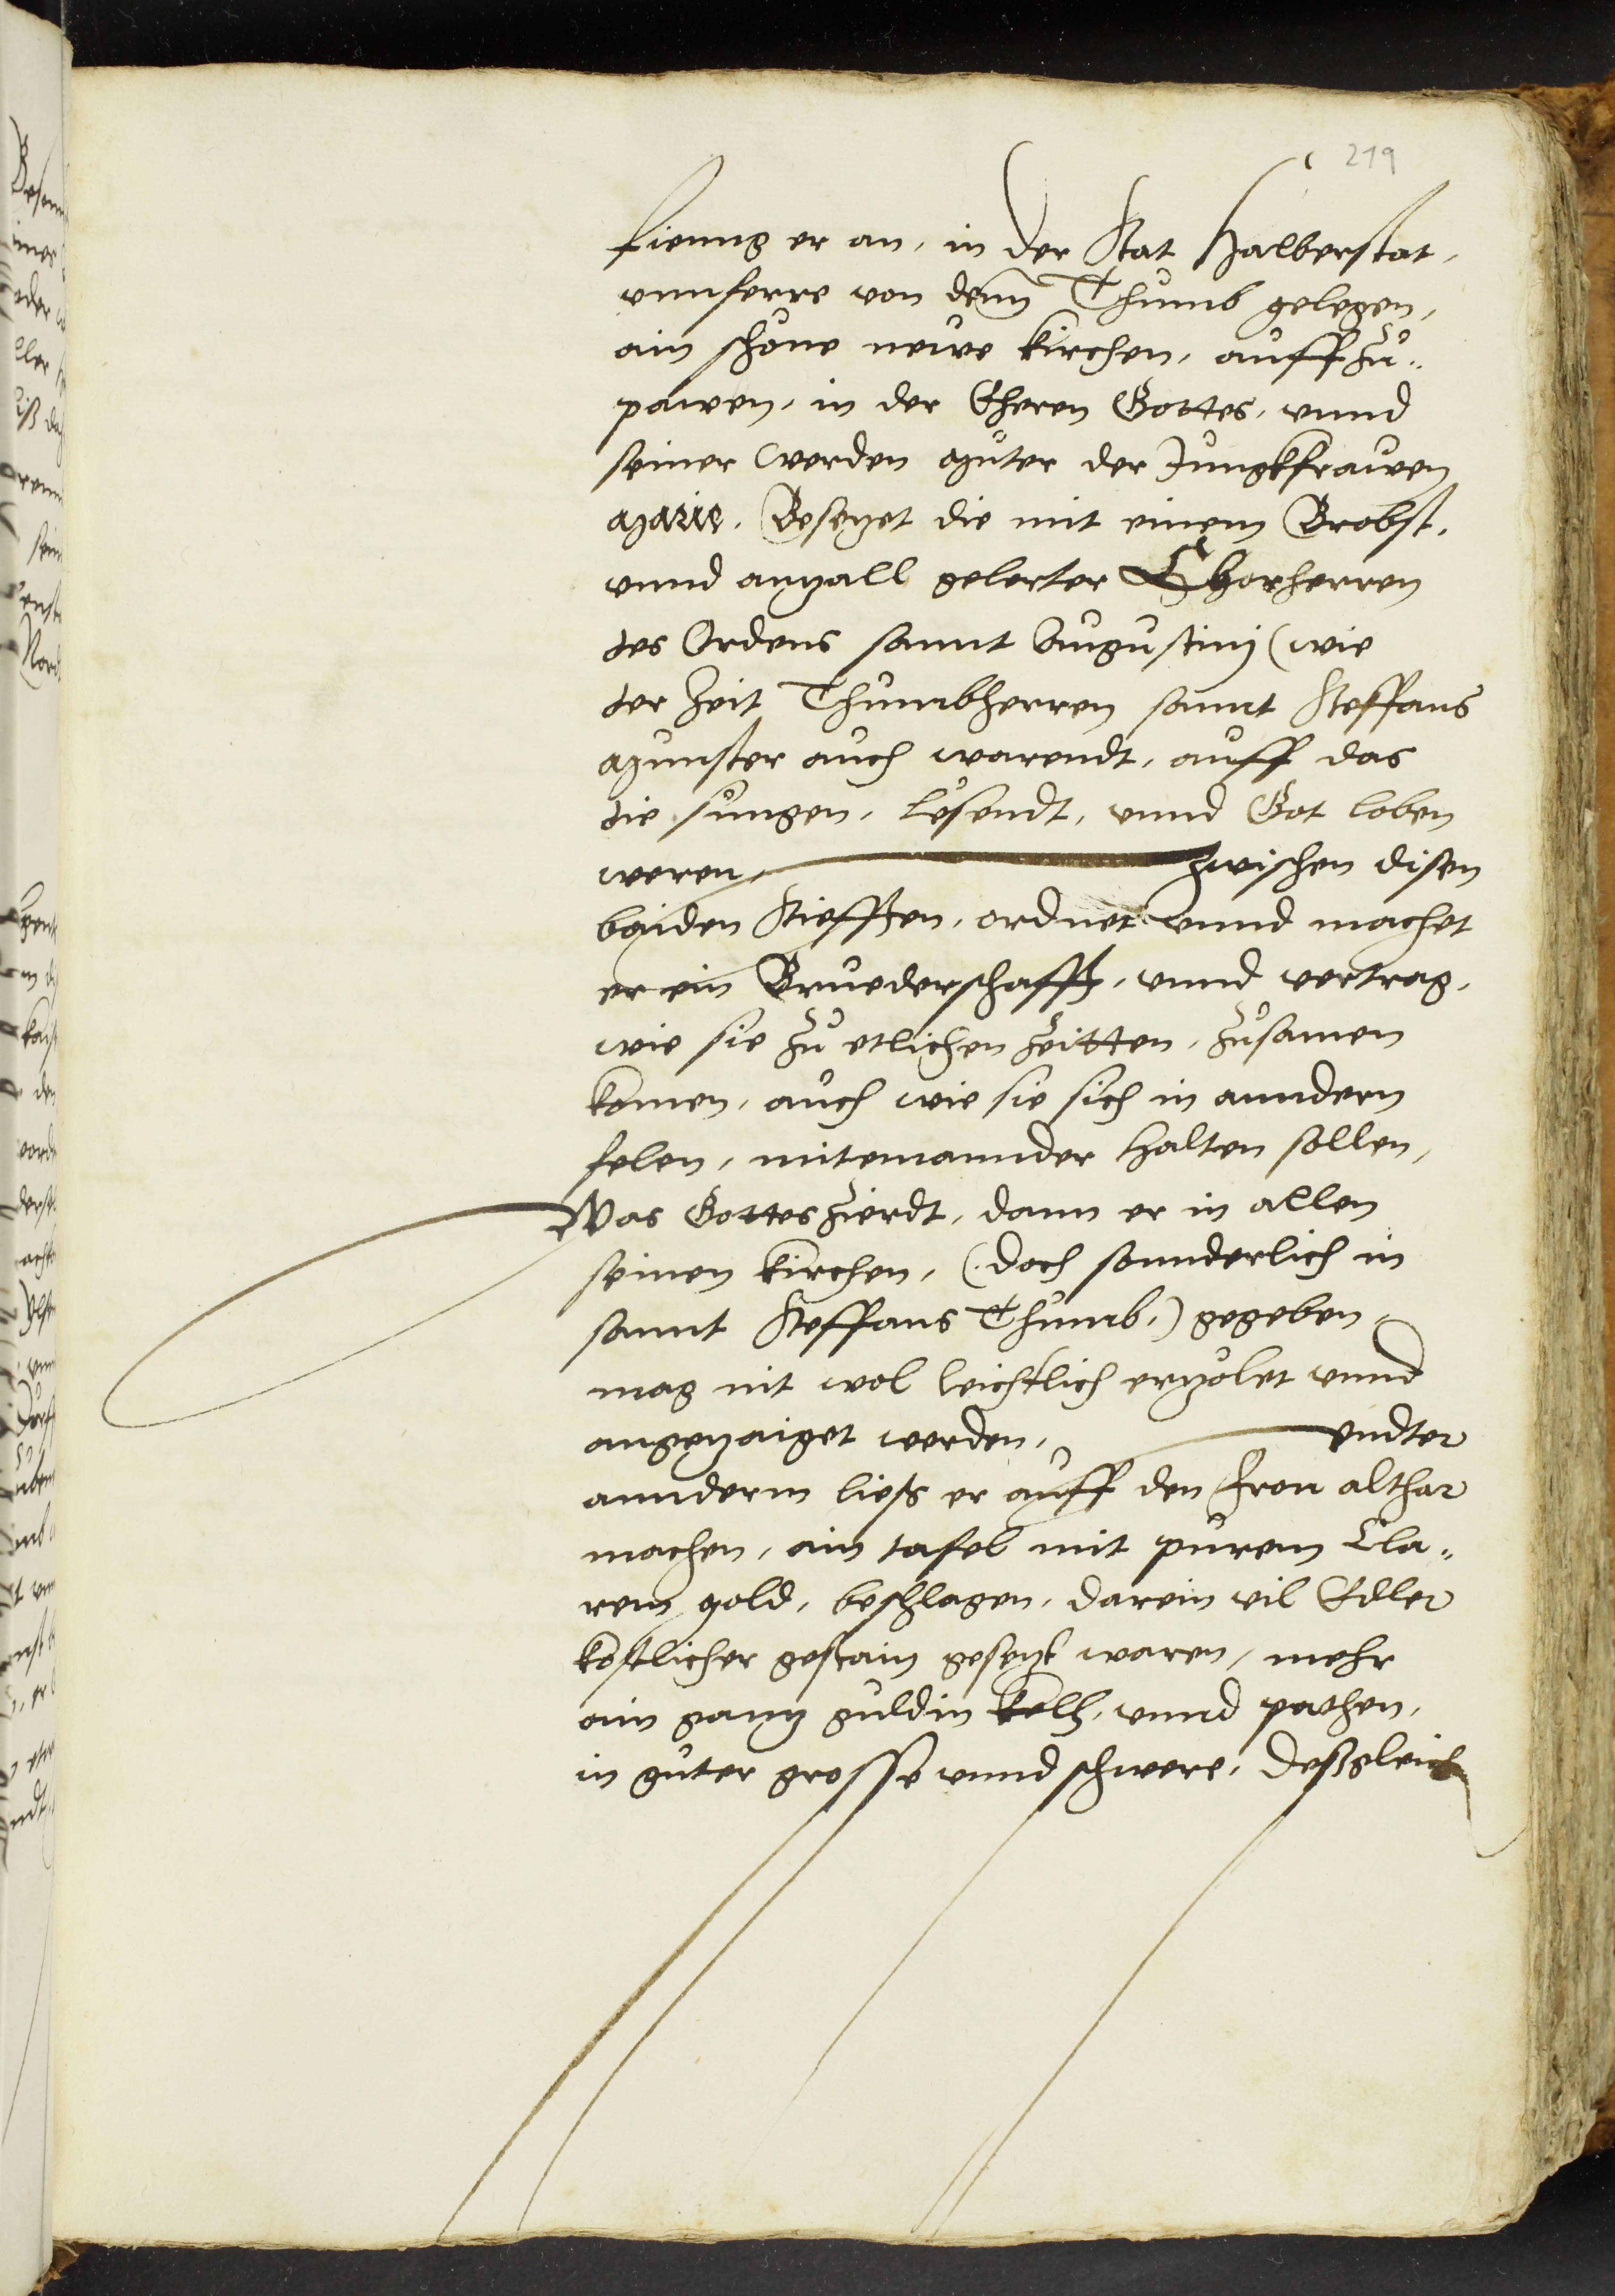 219
fienng er an, in der Stat Halberstat,
vnnferre von dem Thumb gelegen,
ain schöne newe kirchen, auffzu„
pawen, in der Eheren Gottes, vnnd
seiner werden Muter der Jungkfrawen
Marie. Besetzet die mit einem Brobst,
vnnd anzall gelerter Chorherren
des Ordens sannt Augustini (wie
der Zeit Thumbherren sannt Steffans
Munster auch warendt, auff das
die sungen, lesendt, vnnd Got loben
weren, Zwischen disen
baiden Stiefften, ordnet vnnd machet
er ein Bruederschafft, vnnd vertrag,
wie sie zu etlichen Zeitten, zusamen
komen, auch wie sie sich in anndern
felen, mitemannder halten sollen,
Was Gottes Zierdt, dann er in allen
seinen kirchen, (doch sonnderlich in
sannt Steffans Thumb,) gegeben,
mag nit wol leichtlich erzolet vnnd
angezaiget werden, Vndter
annderm ließ er auff den fron althar
machen, ain tafel mit purem Cla„
rem gold, beschlagen, darein vil Edler
kostlicher gestain gesetzt waren, mehr
ain gantz guldin kelh, vnnd pathen,
in guter grosse vnnd schwere, deßgleich